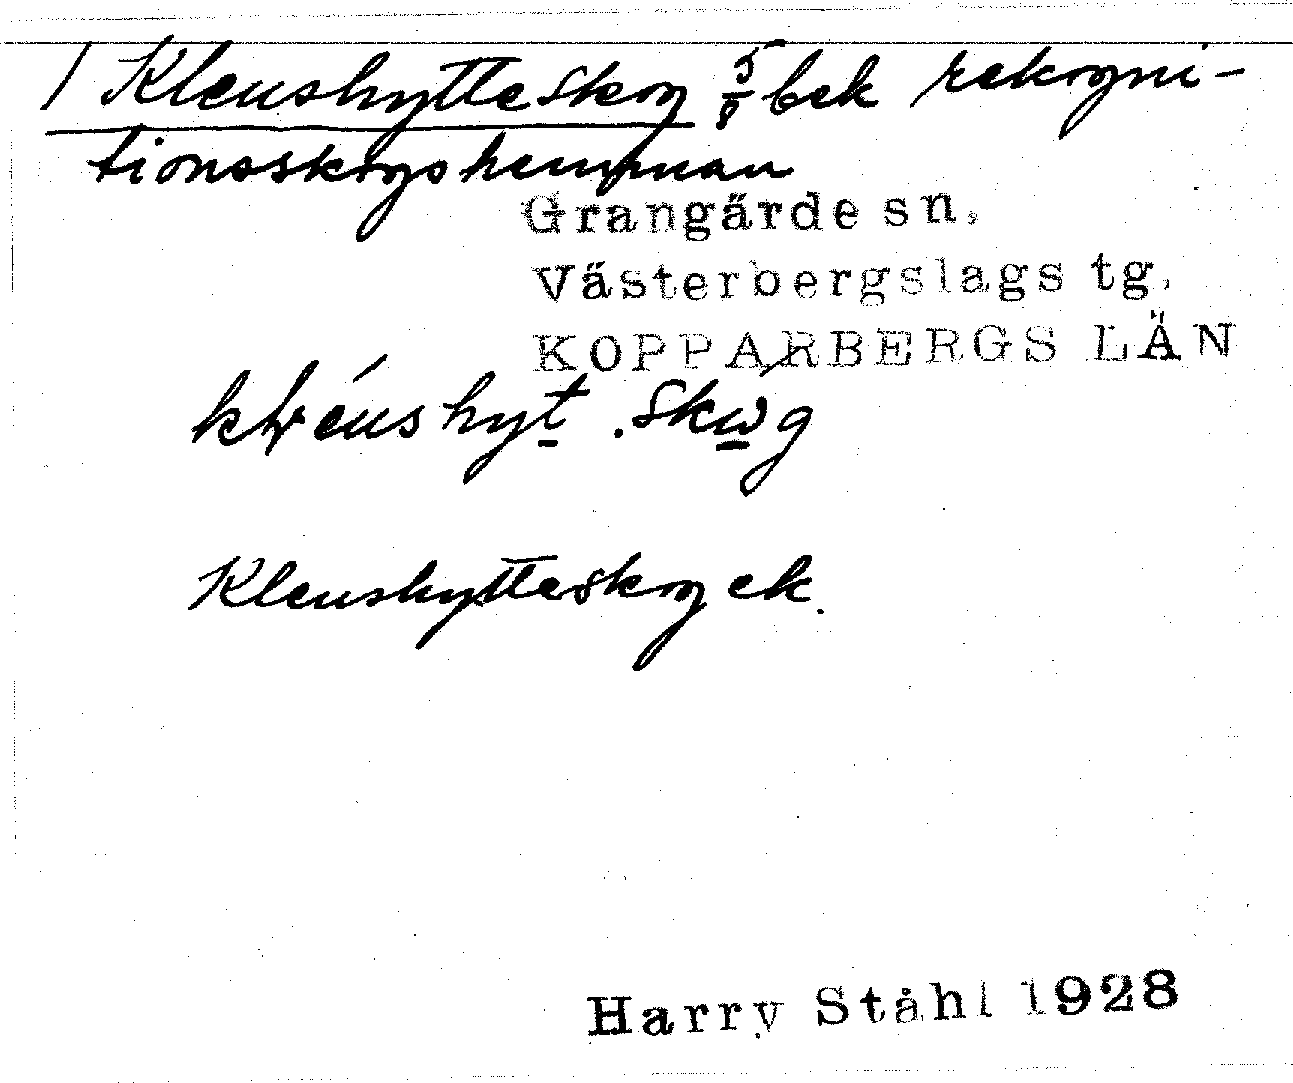 / Klenshytteskog 5/8 bek rekogni-
tionsskogshemman
Grangärde sn,
Västerbergslags tg,
KOPPARBERGS LÄN
Klenshytteskog ek.
Harry Ståhl 1928